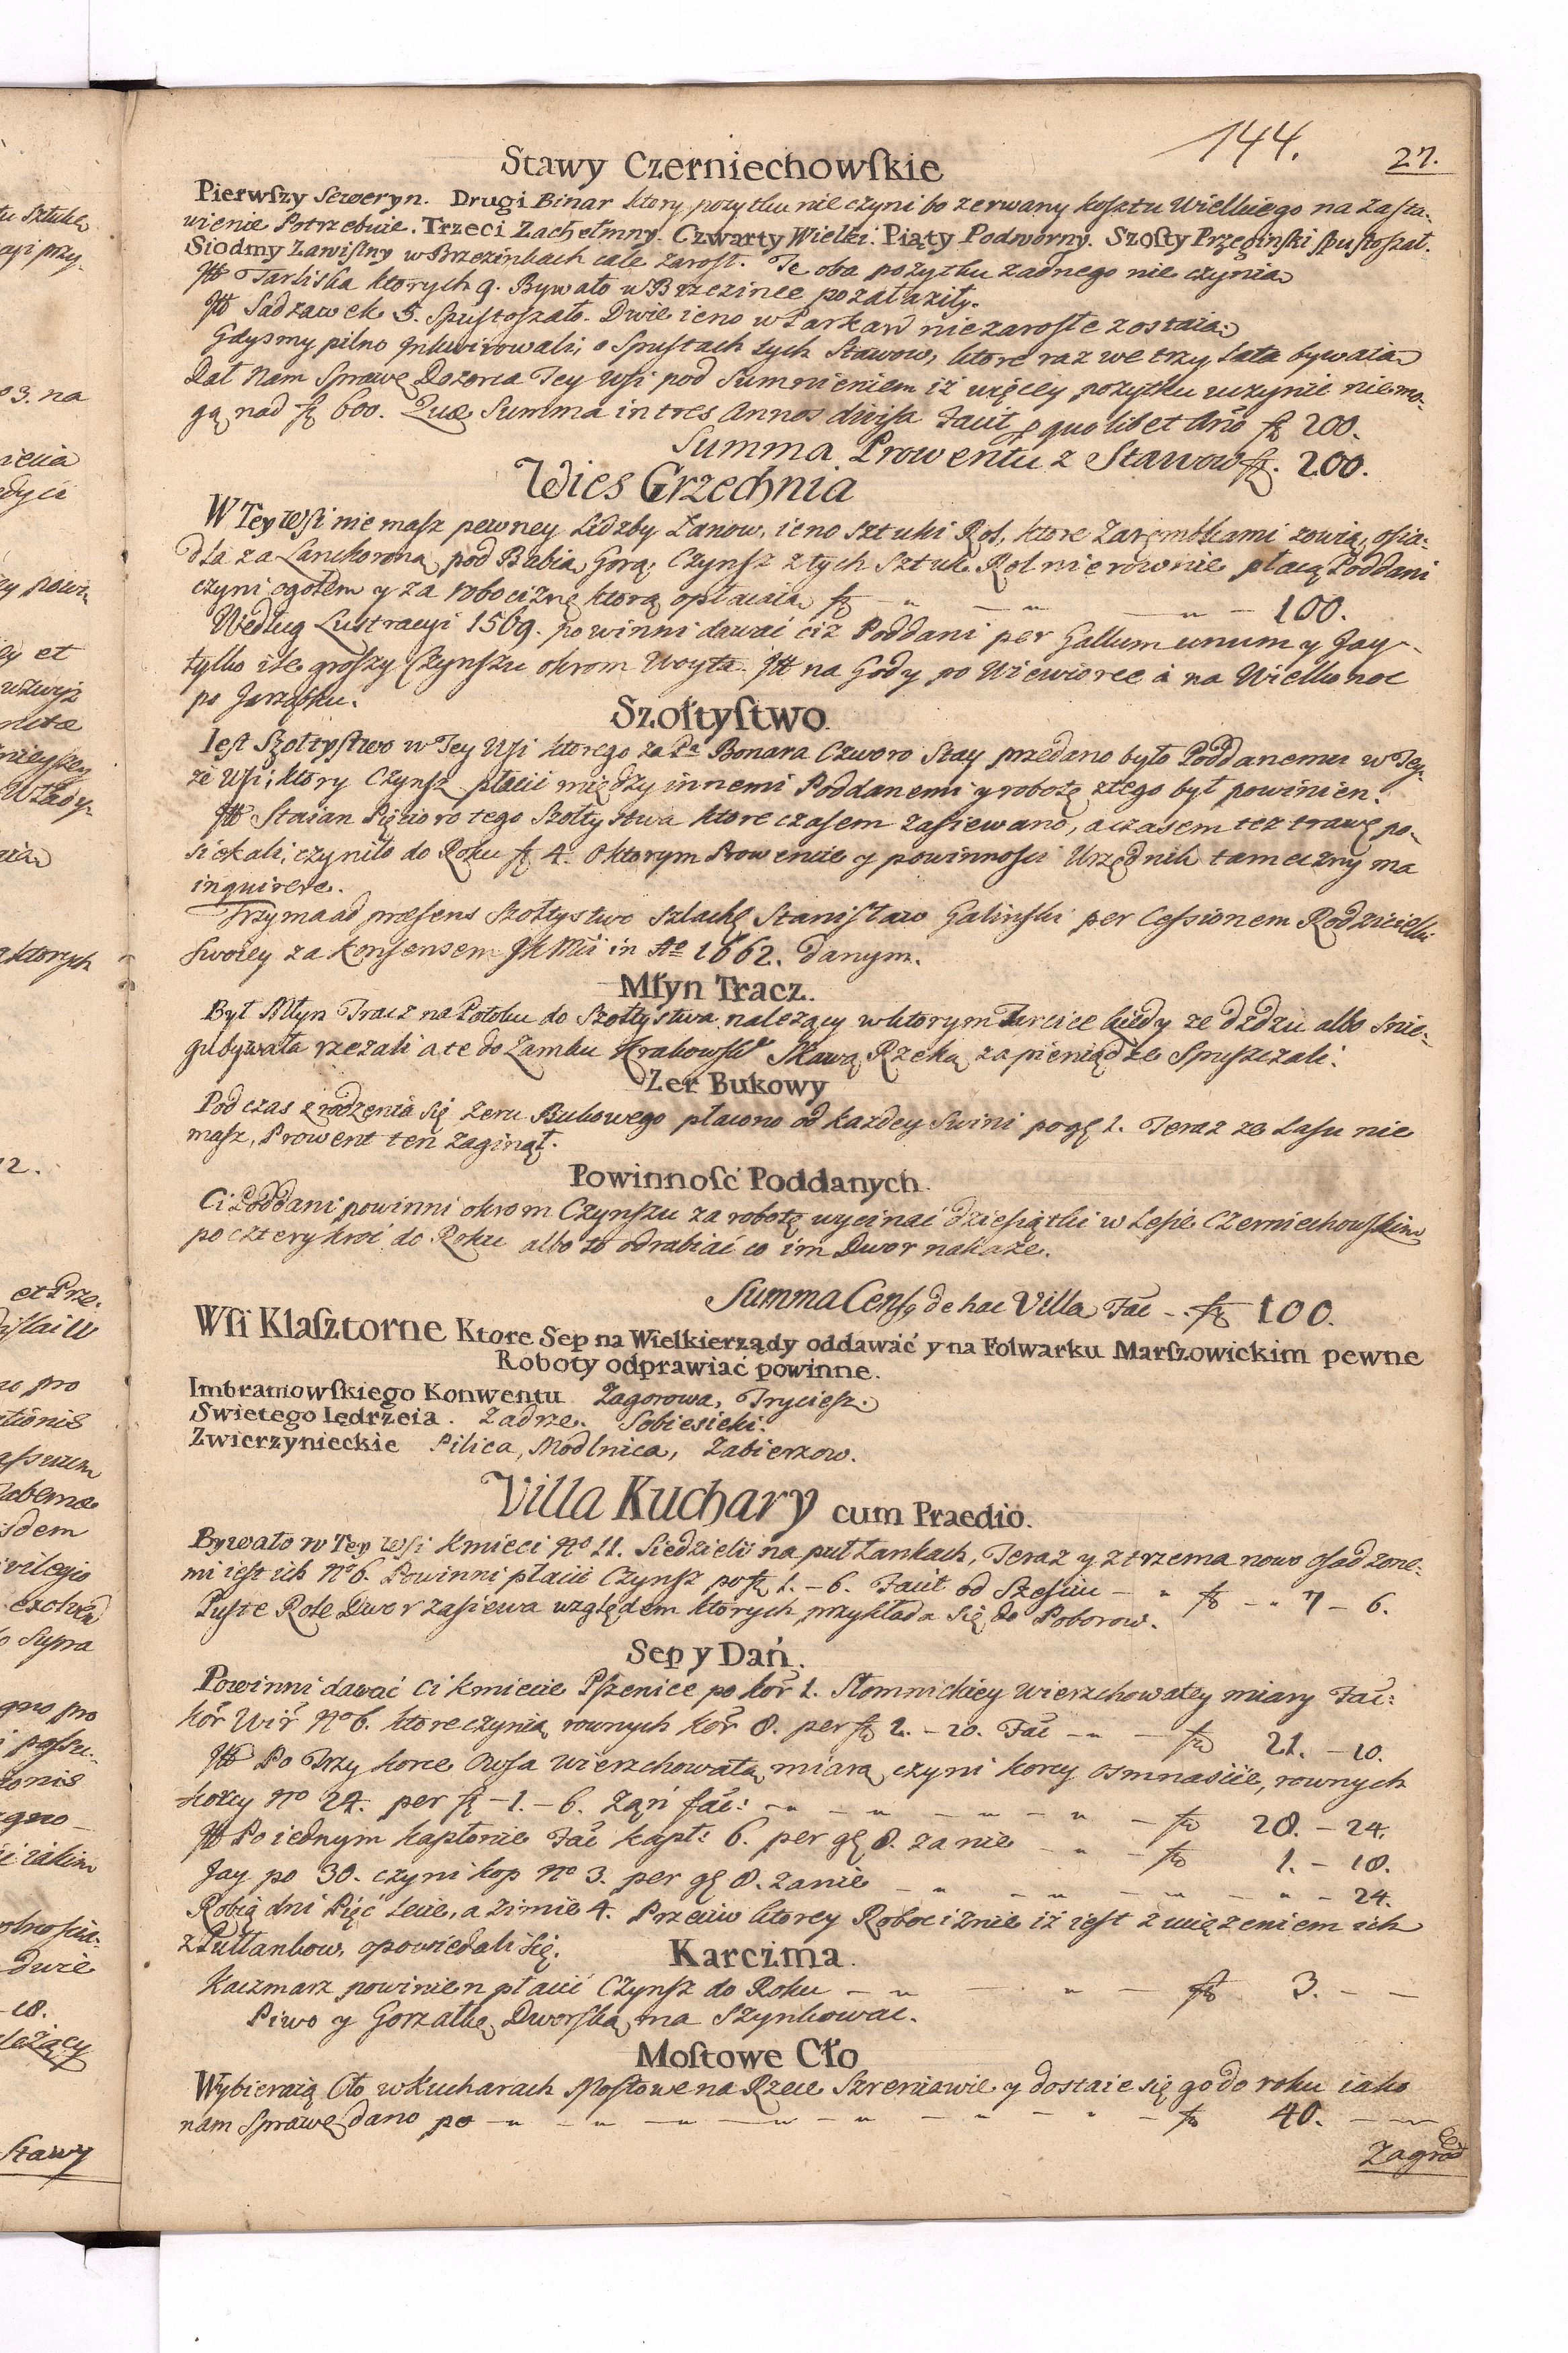 144.
27.
Stawy Czerniechowſkie
Pierwſzy Seweryn. Drugi Binar ktory pozytku nie czyni bo zerwany kosztu Wielkiego na Zasta-
wienie Potrzebuie. Trzeci Zachełmny. Czwarty Wielki. Piąty Podworny. Szoſty Przęginſki ſpuſtoszał.
Siodmy Zawiſlny w Brzezinkach cale zaroſł. Te oba pozytku zadnego nie czynią
Itt Tarliska ktorych 9. Bywało w Brzezince pozałaziły.
Itt Sadzawek 5. Spuſtoszało. Dwie ieno w Parkanſ niezarosłe zostaią.
Gdysmy pilno Inkwirowali, o Spuſtach tych Stawow, ktore raz we trzy Lata bywaią
Dał Nam Sprawę Dozorca Tey Wſi pod Sumnieniem iż więcey pozytku uczynić niemo-
gą nad fł 600. Quæ Summa in tres Annos diviſa Facit p quolibet Año fł 200.
Summa Prowentu z Stawow fł. 200.
Wies Grzechnia
W Tey Wſi nie maſz pewney Lidzby Łanow, ieno sztuki Rol, ktore Zarembkami zowią, osia-
dła za Lanckoroną pod Babią Gorą. Czynſz z tych Sztuk Rol nierownie płacą Poddani
czyni ogołem y za robociznę ktorą opłacaią fł - " - " - " - 100.
Według Lustracyi 1569. powinni dawać ciż Poddani per Gallum unum y Jay
tylko ile groszy Czynſzu okrom Woyta. Itt na Gody po Wiewiorce a na Wielkanoc
po Jarząbku.
Szołtyſtwo.
Ieſt Szołtyſtwo w Tey Wſi ktorego za Pa Bonara Czworo Stay przedano było Poddanemu w Tey-
że Wſi, ktory Czynſz płacić między innemi Poddanemi y robotę z tego był powinien.
Itt Staian Pięcioro tego Szołtystwa ktore czasem zasiewano, a czasem tez trawę po-
siekali, czyniło do Roku fł 4. O ktorym Prowencie y powinnoſci Urzędnik tameczny ma
inquirere.
Trzyma ad præsens szołtystwo Szlachę Staniſław Galinſki per Ceſsionem Rodzicielki
swoiey za Konsensem JK Mći in Ao 1662. danym.
Młyn Tracz.
Był Młyn Tracz na Potoku do Szołtystwa należący w ktorym Tarcice kiedy ze dżdżu albo snie-
gu bywała rzezali a te do Zamku Krakowsko Skawą Rzeką za pieniądze Spuszczali.
Zer Bukowy
Pod czas zrodzenia się żeru Bukowego płacono od każdey Swini po gł 1. Teraz ze Lasu nie
masz, Prowent ten zaginął.
Powinnoſć Poddanych.
Ci Poddani powinni okrom Czynſzu za robotę wycinać dziesiątki w Lesie Czerniechowſkim
po czterykroć do Roku albo to odrabiać co im Dwor nakaże.
Summa Censꝯ de hac Villa Fac - . fł 100.
Wſi Klaſztorne Ktore Sep na Wielkierządy oddawać y na Folwarku Marſzowickim pewne
Roboty odprawiać powinne.
Imbramowſkiego Konwentu Zagorowa, Tryciesz.
Swietego Iędrzeia. Zadrze. Sobiesieki.
Zwierzynieckie Pilica, Modlnica, Zabierzow.
Villa Kuchary cum Praedio.
Bywało w Tey Wſi Kmieci No 11. Siedzieli na puł Łankach, Teraz y z trzema nowo osadzone-
mi ieſt ich No 6. Powinni płacić Czynſz po fł 1. - 6. Facit od Szeſciu - " fł - " 7 - 6.
Puste Role Dwor zasiewa względem ktorych przykłada się do Poborow.
Sep y Dań.
Powinni dawać ci Kmiecie Pſzenice po kor 1. Słomnickiey wierzchowatey miary Fac:
kor Wir No 6. ktore czynią rownych kor 8. per fł 2. - 20. Fac - " - fł 21. - 10.
Itt Po Trzy korce Owsa wierzchowatą miarą czyni korcy osmnaście, rownych
korcy No 24. per fł - 1. - 6. Zań fac: - " - " - " - " - fł 28. - 24.
Itt Po iednym kapłonie Fac kapł: 6. per gł 8. za nie - " - fł 1. - 18.
Jay po 30. czyni kop No 3. per gł 8. zanie - " - " - " - " - 24.
Robią dni Pięć Lecie, a zimie 4. Przeciw ktorey Robociznie iż iest z uciążeniem ich
z Pułłankow, opowiedali się.
Karczma.
Kaczmarz powinien płacić Czynſz do Roku - " - " - fł 3. - -
Piwo y Gorzałkę Dworſką ma szynkować.
Moſtowe Cło
Wybieraią Cło w Kucharach Moſtowe na Rzece Szreniawie y dostaie się go do roku iako
nam Sprawę dano po - " - " - " - " - " - " - fł 40. - "
Zagrod